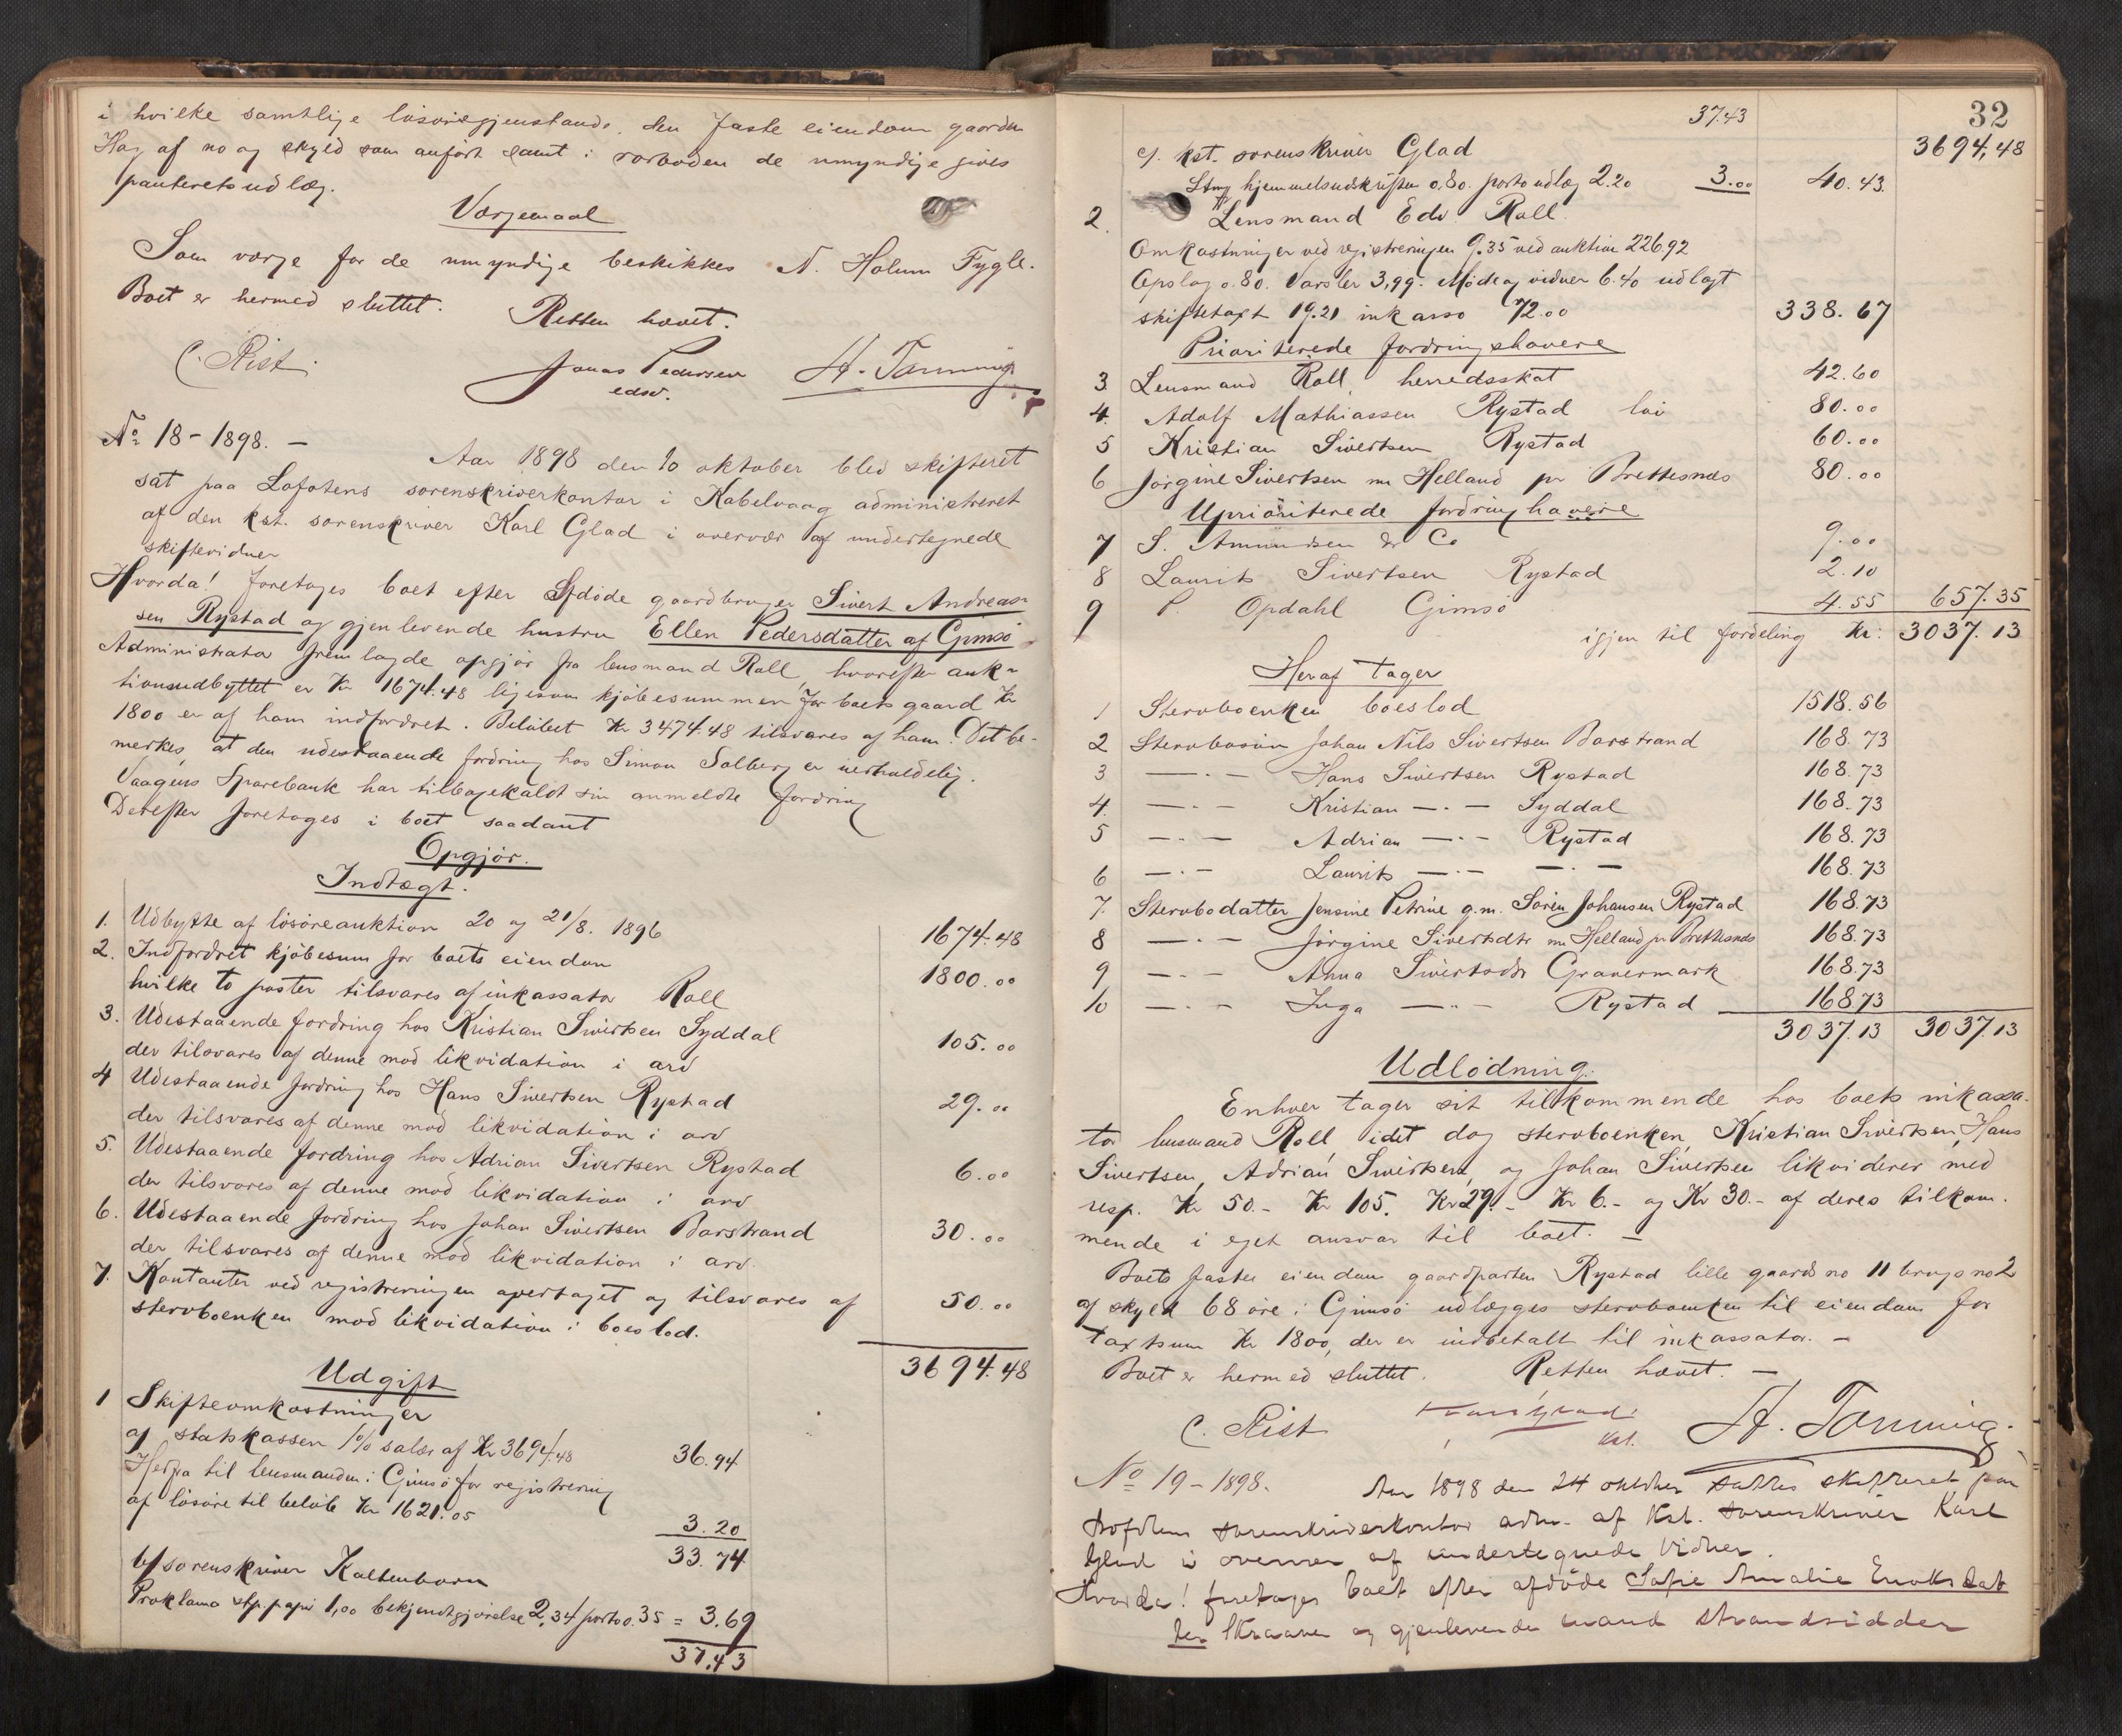 i hvilke samtlige løsøregjenstande, den faste eiendom gaarden
Hag af no og skyld som anført samt i rorboden de umyndige gives
panteretsudlæg.
Værgemaal
Som værge for de umyndige beskikkes N. Holum Fygle.
Boet er hermed sluttet. Retten hævet.
C. Rist. Jonas Pedersen H. Tønning
edsv.
No 18-1898. — Aar 1898 den 10 oktober blev skifteret
sat paa Lofotens sorenskriverkontor i Kabelvaag administreret
af den kst. sorenskriver Karl Glad i overvær af undertegnede
skiftevidner
Hvorda! foretoges boet efter afdøde gaardbruger Sivert Andreas-
sen Rystad og gjenlevende hustru Ellen Pedersdatter af Gimsø
Administrator fremlagde opgjør fra lensmand Roll, hvorefter auk-
tionsudbyttet er Kr 1674.48 ligesom kjøbesummen for boets gaard Kr
1800 er af ham indfordret. Beløbet Kr 3474.48 tilsvares af ham. Det be-
merkes, at den udestaaende fordring hos Simon Solberg er uerholdelig.
Vaagens Sparebank har tilbagekaldt sin anmeldte fordring
Derefter foretoges i boet saadant
Opgjør.
Indtægt.
1. Udbytte af løsøreauktion 20 og 21/8. 1896 1674.48
2. Indfordret kjøbesum for boets eiendom 1800.00
hvilke to poster tilsvares af inkassator Roll
3. Udestaaende fordring hos Kristian Sivertsen Syddal
der tilsvares af denne mod likvidation i arv 105.00
4 Udestaaende fordring hos Hans Sivertsen Rystad
der tilsvares af denne mod likvidation i arv 29.00
5. Udestaaende fordring hos Adrian Sivertsen Rystad
der tilsvares af denne mod likvidation i arv 6.00
6. Udestaaende fordring hos Johan Sivertsen Barstrand
der tilsvares af denne mod likvidation i arv. 30.00
7. Kontanter ved registreringen overtaget og tilsvares af
stervboenken mod likvidation i boeslod. 50.00
3694.48
Udgift
1 Skifteomkostninger
a/ statskassen 1% salær af Kr 3694.48 36.94
Herfra til lensmanden i Gimsø for registrering
af løsøre til beløb Kr 1621.05 3.20
33.74
b/ sorenskriver Kaltenborn
Proklama stp. papir 1,00 bekjendtgjørelse 2,34 porto 0.35 = 3.69
37.43
32
37.43 3694,48
c/. kst. sorenskriver Glad
Stmp hjemmelsudskriften 0.80. porto udlæg 2.20 3.00 40.43.
2. Lensmand Edv Roll.
Omkostninger ved registreringen 9.35 ved auktion 226.92
Opslag 0.80. Varsler 3,99. Møde og vidner 6.40 udlagt
skiftetaxt 19.21 inkasso 72.00 338.67
Prioriterede fordringshavere
3 Lensmand Roll, herredsskat 42.60
4. Adolf Mathiassen Rystad løn 80.00
5 Kristian Sivertsen Rystad 60.00
6 Jørgine Sivertsen nu Helland pr Brettesnes 80.00
Uprioriterede fordringhavere
7 S. Amundsen & Co 9.00
8 Laurits Sivertsen Rystad 2.10
9 P. Opdahl Gimsø 4.55 657.35
igjen til fordeling Kr: 3037.13
Heraf tager
1 Stervboenken boeslod 1518.56
2 Stervbosøn Johan Nils Sivertsen Barstrand 168.73
3 —.— Hans Sivertsen Rystad 168.73
4. —.— Kristian —.— Syddal 168.73
5 —.— Adrian —.— Rystad 168.73
6 —.— Laurits —.— —.— 168.73
7. Stervbodatter Jensine Petrine g.m. Søren Johansen Rystad 168.73
8 —.— Jørgine Sivertsdtr nu Helland pr Brettesnes 168.73
9 —.— Anna Sivertsdtr Gravermark 168.73
10 —.— Inga —.— Rystad 168.73
3037.13 3037.13
Udlodning.
Enhver tager sit tilkommende hos boets inkassa-
tor lensmand Roll, idet dog stervboenken, Kristian Sivertsen, Hans
Sivertsen, Adrian Sivertsen, og Johan Sivertsen likviderer med
resp. Kr 50.- Kr 105. Kr 29.- Kr 6.- og Kr 30.- af deres tilkom-
mende i eget ansvar til boet. —
Boets faste eiendom gaardparten Rystad lille gaards no 11 brugs no 2
af skyld 68 øre i Gimsø udlægges stervboenken til eiendom for
taxtsum Kr 1800, der er indbetalt til inkassator. —
Boet er hermed sluttet. Retten hævet. —
C. Rist Karl Glad H. Tønning.
kst.
No 19-1898. Aar 1898 den 24 oktober sattes skifteret paa
Lofotens sorenskriverkontor adm. af kst. sorenskriver Karl
Glad i overvær af undertegnede vidner.
Hvorda! foretoges boet efter afdøde Sofie Amalie Enoksdat
ter Skraaven og gjenlevende mand strandsidder